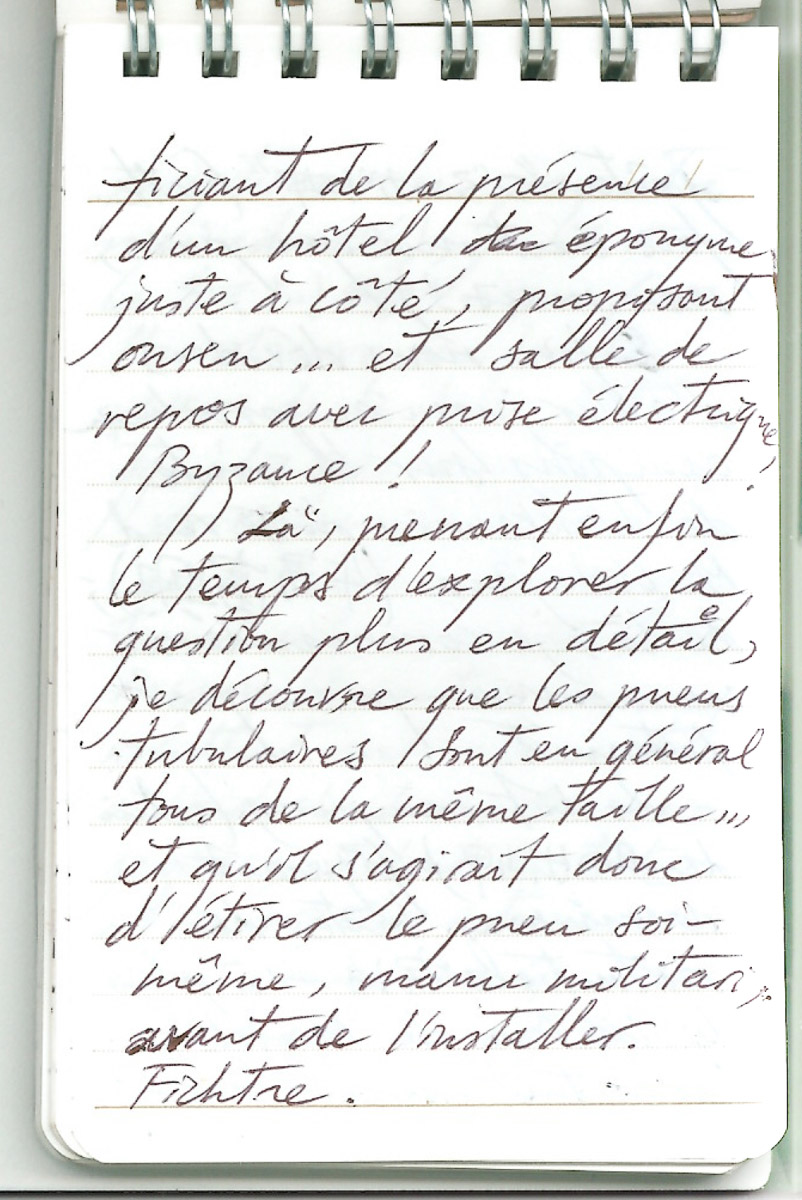 ficiant de la présence
d'un hôtel éponyme
juste à côté, proposant
onsen... et salle de
repos avec prise électrique,
Byzance !
Là, prenant enfin
le temps d'explorer la
question plus en détail,
je découvre que les pneus
tubulaires sont en général
tous de la même taille...
et qu'il s'agirait donc
d'étirer le pneu soi-
même, manu militari,
avant de l'installer.
Fichtre.